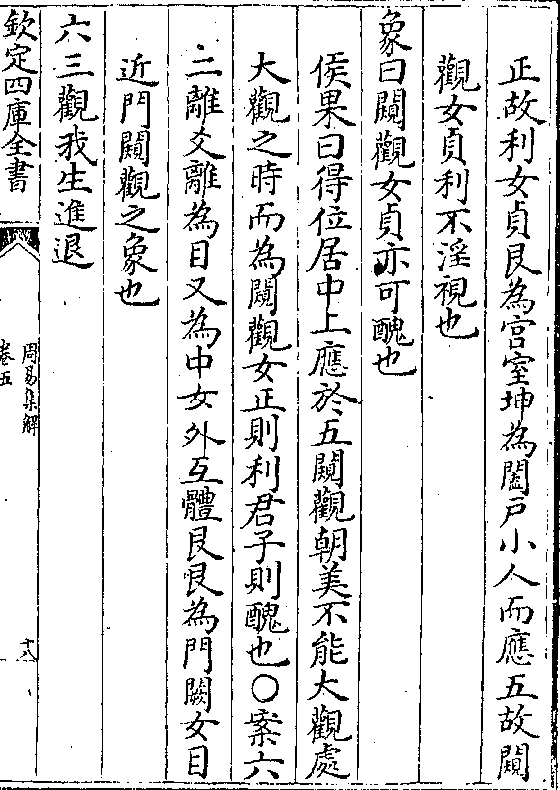 正故利女貞艮為宮室坤為闔戶小人而應五故闚
觀女貞利不淫視也
象曰闚觀女貞亦可醜也
侯果曰得位居中上應於五闚觀朝美不能大觀處
大觀之時而為闚觀女正則利君子則醜也○案六
二離爻離為目又為中女外互體艮艮為門闕女目
近門闚觀之象也
六三觀我生進退
欽定四庫全書
周易集解
卷五
十八